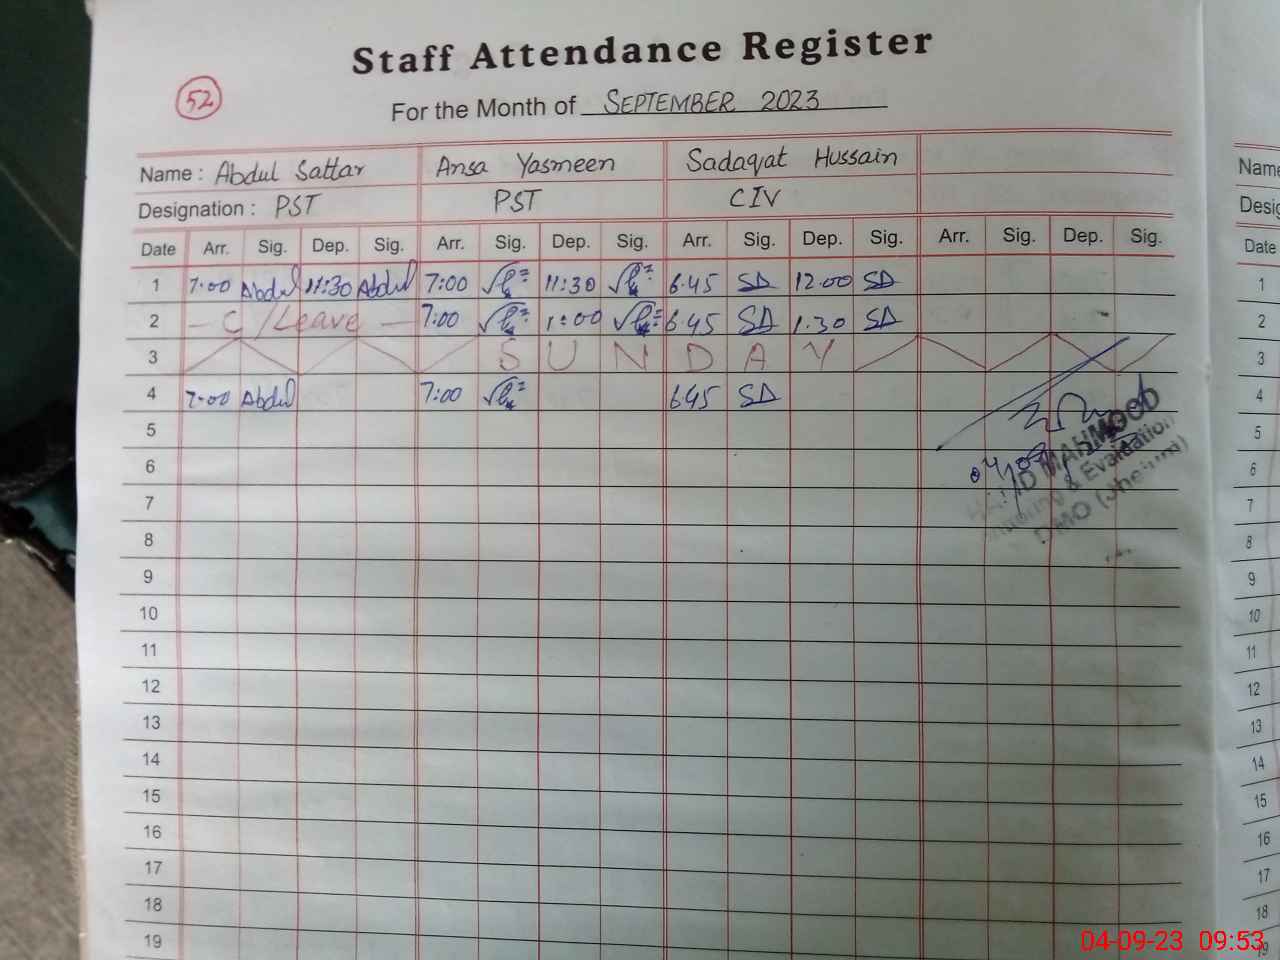 Staff Attendance Register
52
For the Month of SEPTEMBER 2023
Name : Abdul Sattar Ansa Yasmeen Sadaqat Hussain
Designation : PST PST CIV
Date Arr. Sig. Dep. Sig. Arr. Sig. Dep. Sig. Arr. Sig. Dep. Sig. Arr. Sig. Dep. Sig.
1 7:00 Abdul 11:30 Abdul 7:00 11:30 6.45 SD 12.00 SD
2 C/Leave 7:00 1:00 6.45 SD 1.30 SD
3 SUNDAY
4 7:00 Abdul 7:00 645 SD
5
6
7
8
9
10
11
12
13
14
15
16
17
18
19
MAHMOOD
& Evaluation
DMO (Jhelum)
Name
Date
1
2
3
4
5
6
7
8
9
10
11
12
13
14
15
16
17
18
04-09-23 09:53